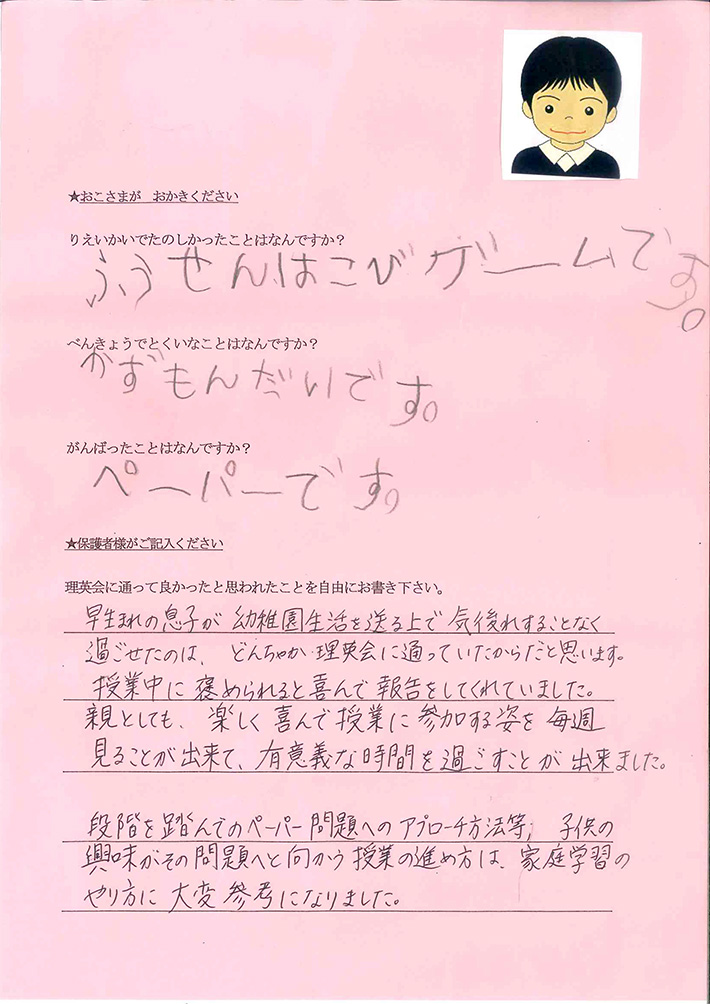 ★おこさまが　おかきください
りえいかいでたのしかったことはなんですか？
ふうせんはこびゲームです。
べんきょうでとくいなことはなんですか？
かずもんだいです。
がんばったことはなんですか？
ペーパーです。
★保護者様がご記入ください
理英会に通って良かったと思われたことを自由にお書き下さい。
早生まれの息子が幼稚園生活を送る上で気後れすることなく
過ごせたのは、どんちゃか理英会に通っていたからだと思います。
授業中に褒められると喜んで報告をしてくれていました。
親としても、楽しく喜んで授業に参加する姿を毎週
見ることが出来て、有意義な時間を過ごすことが出来ました。
段階を踏んでのペーパー問題へのアプローチ方法等、子供の
興味がその問題へと向かう授業の進め方は、家庭学習の
やり方に大変参考になりました。